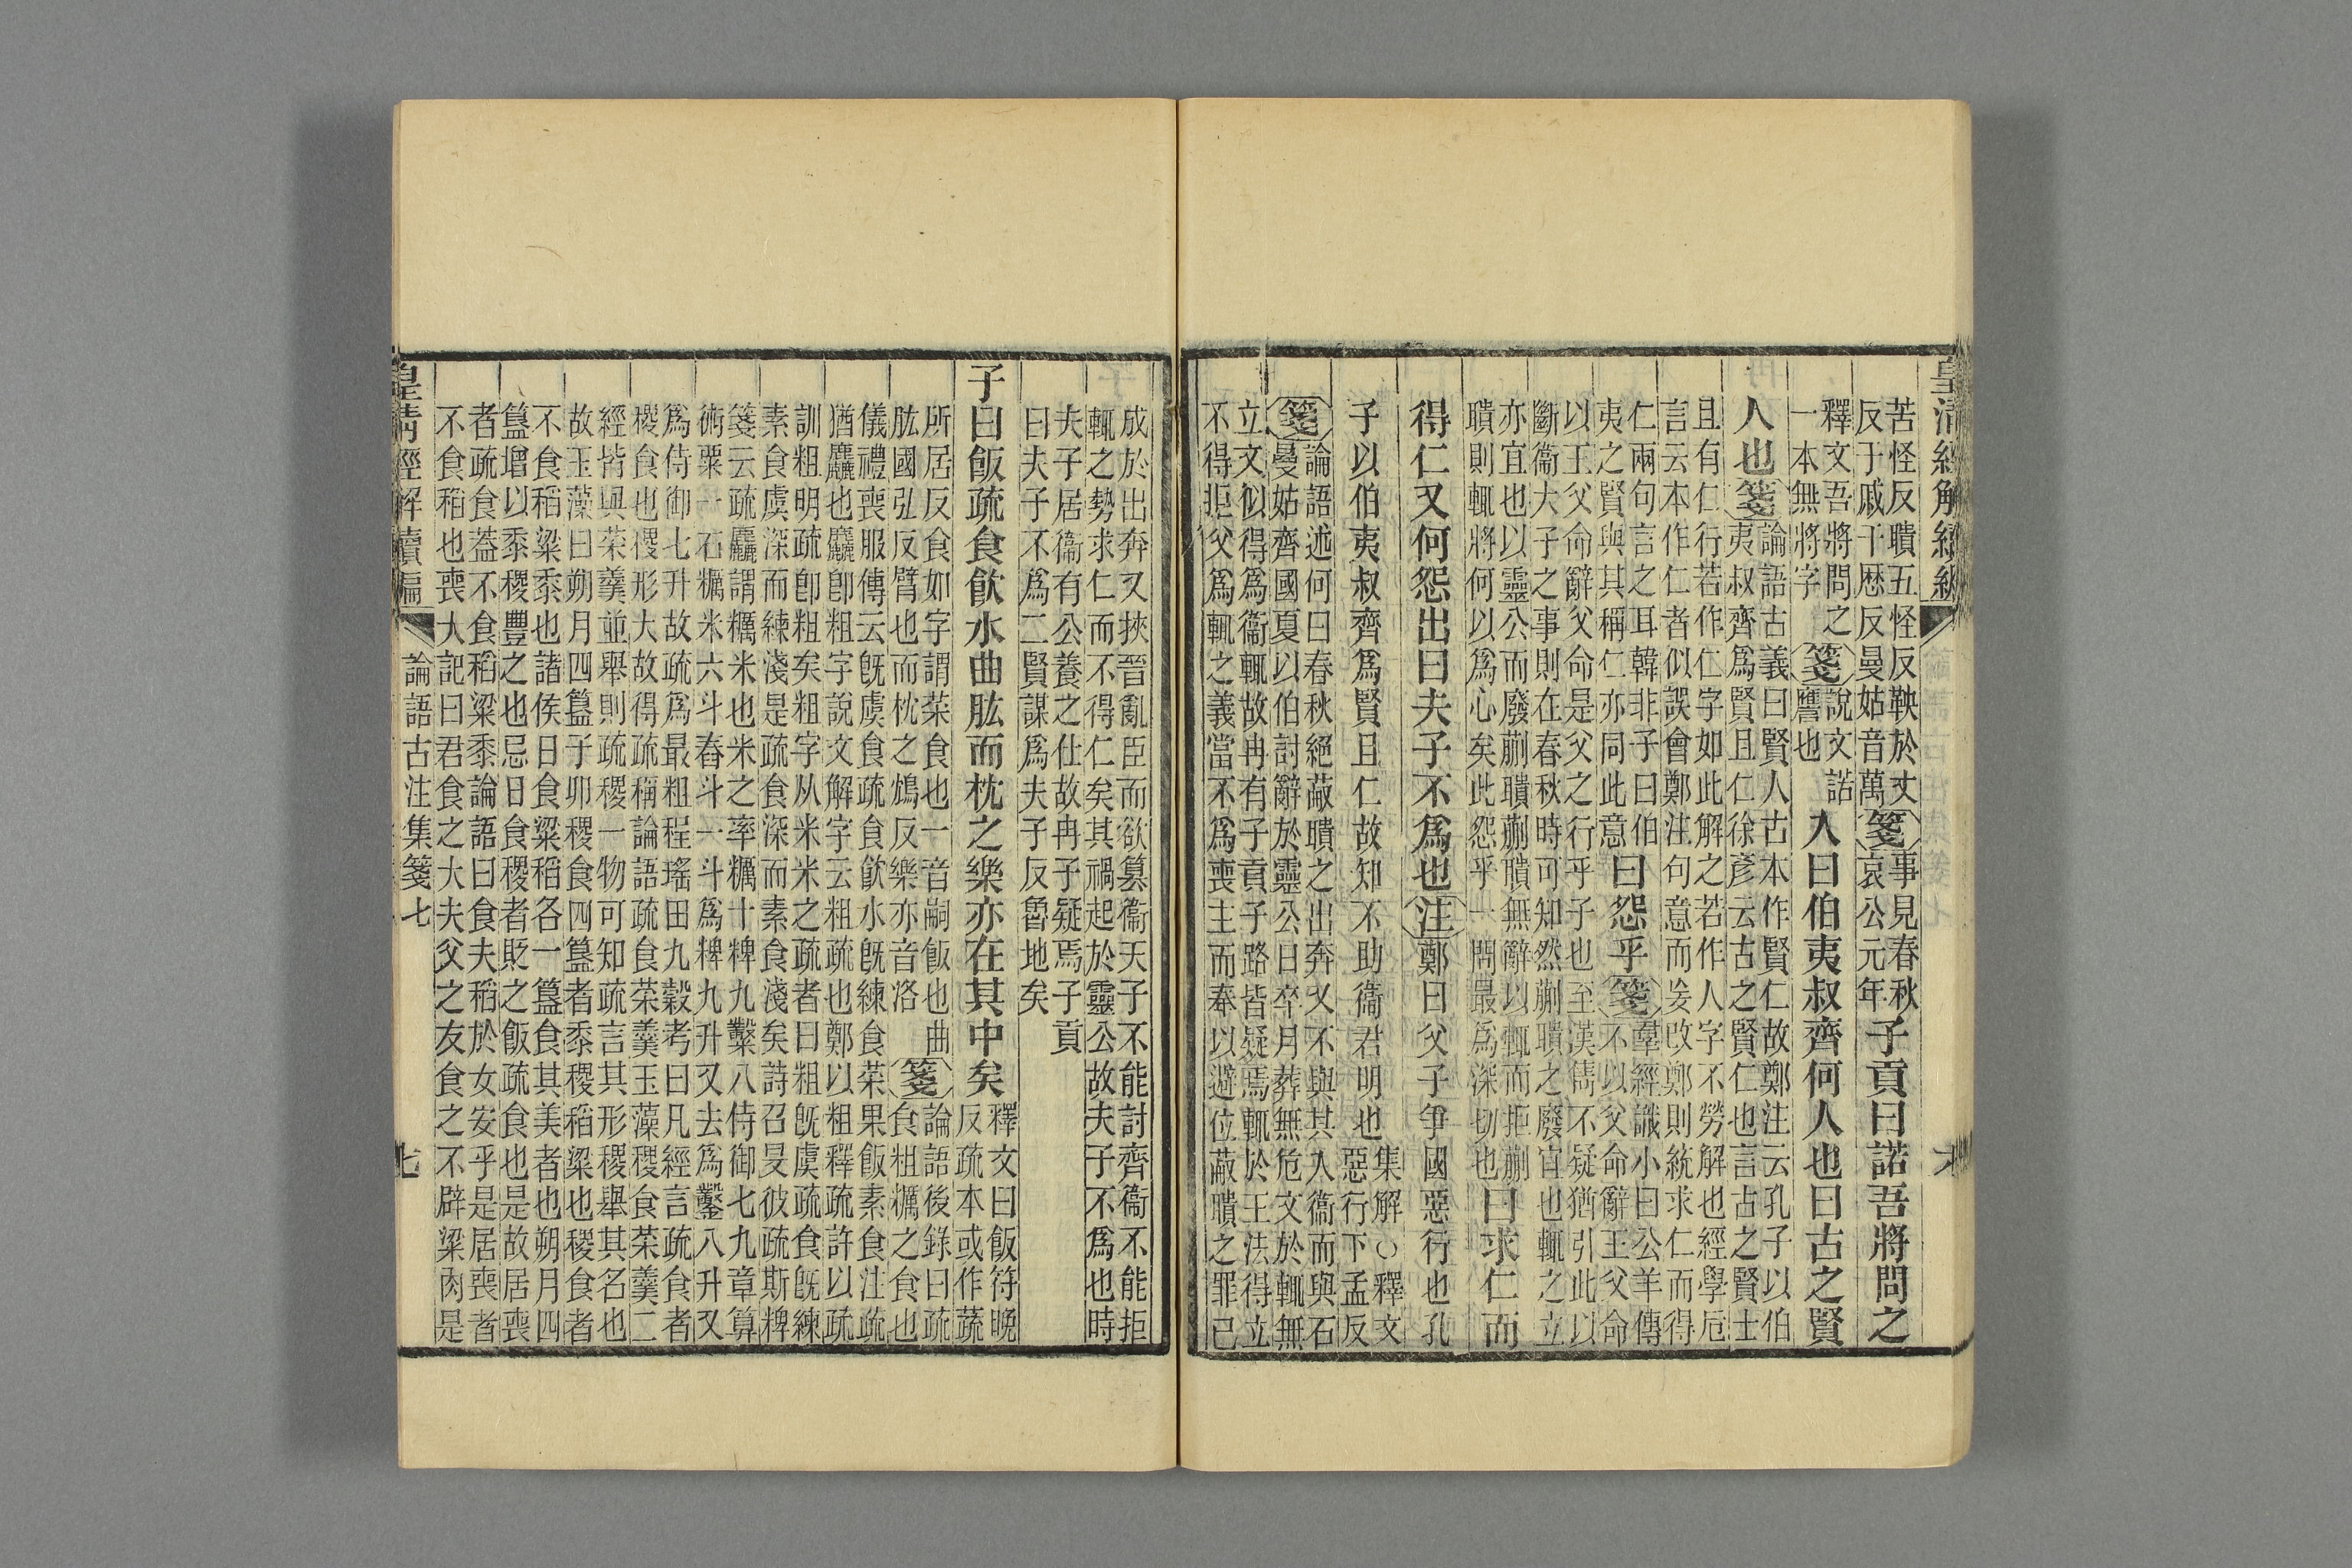 皇清經解續編
六
苦怪反聵五怪反鞅於丈
反于戚千歴反曼姑音萬
箋
事見春秋
哀公元年
子貢曰諾吾將問之
釋文吾將問之
一本無將字
箋
說文諾
譍也
入曰伯夷叔齊何人也曰古之賢
人也
箋
論語古義曰賢人古本作賢仁故鄭注云孔子以伯
夷叔齊爲賢且仁徐彥云古之賢仁也言古之賢士
且有仁行若作仁字如此解之若作人字不勞解也經學卮
言云本作仁者似誤會鄭注句意而妄改鄭則統求仁而得
仁兩句言之耳韓非子曰伯
夷之賢與其稱仁亦同此意
曰怨乎
箋
羣經識小曰公羊傳
不以父命辭王父命
以王父命辭父命是父之行乎子也至漢儁不疑猶引此以
斷衞大子之事則在春秋時可知然蒯聵之廢宜也輒之立
亦宜也以靈公而廢蒯聵蒯聵無辭以輒而拒蒯
聵則輒將何以爲心矣此怨乎一問最爲深切也
曰求仁而
得仁又何怨出曰夫子不爲也
注
鄭曰父子爭國惡行也孔
子以伯夷叔齊爲賢且仁故知不助衞君明也
集解○釋文
惡行下孟反
箋
論語述何曰春秋絕蒯聵之出奔又不與其入衞而與石
曼姑齊國夏以伯討辭於靈公日卒月葬無危文於輒無
立文似得爲衞輒故冉有子貢子路皆疑焉輒於王法得立
不得拒父爲輒之義當不爲喪主而奉以避位蒯聵之罪已
成於出奔又挾晉亂臣而欲篡衞天子不能討齊衞不能拒
輒之勢求仁而不得仁矣其禍起於靈公故夫子不爲也時
夫子居衞有公養之仕故冉子疑焉子貢
曰夫子不爲二賢謀爲夫子反魯地矣
子曰飯疏食飮水曲肱而枕之樂亦在其中矣
釋文曰飯符晚
反疏本或作蔬
所居反食如字謂菜食也一音嗣飯也曲
肱國弘反臂也而枕之鴆反樂亦音洛
箋
論語後錄曰疏
食粗糲之食也
儀禮喪服傳云旣虞食疏食飮水旣練食菜果飯素食注疏
猶麤也麤卽粗字說文解字云粗疏也鄭以粗釋疏許以疏
訓粗明疏卽粗矣粗字从米米之疏者曰粗旣虞疏食旣練
素食虞深而練淺是疏食深而素食淺矣詩召旻彼疏斯粺
箋云疏麤謂糲米也米之率糲十粺九鑿八侍御七九章算
術粟一石糲米六斗舂斗一斗爲粺九升又去爲鑿八升又
爲侍御七升故疏爲最粗程瑤田九穀考曰凡經言疏食者
稷食也稷形大故得疏稱論語疏食菜羹玉藻稷食菜羹二
經皆與菜羹並舉則疏稷一物可知疏言其形稷舉其名也
故玉藻曰朔月四簋子卯稷食四簋者黍稷稻粱也稷食者
不食稻粱黍也諸侯日食粱稻各一簋食其美者也朔月四
簋增以黍稷豐之也忌日食稷者貶之飯疏食也是故居喪
者疏食葢不食稻粱黍論語曰食夫稻於女安乎是居喪者
不食稻也喪大記曰君食之大夫父之友食之不辟粱肉是
皇清經解續編
論語古注集箋七
七